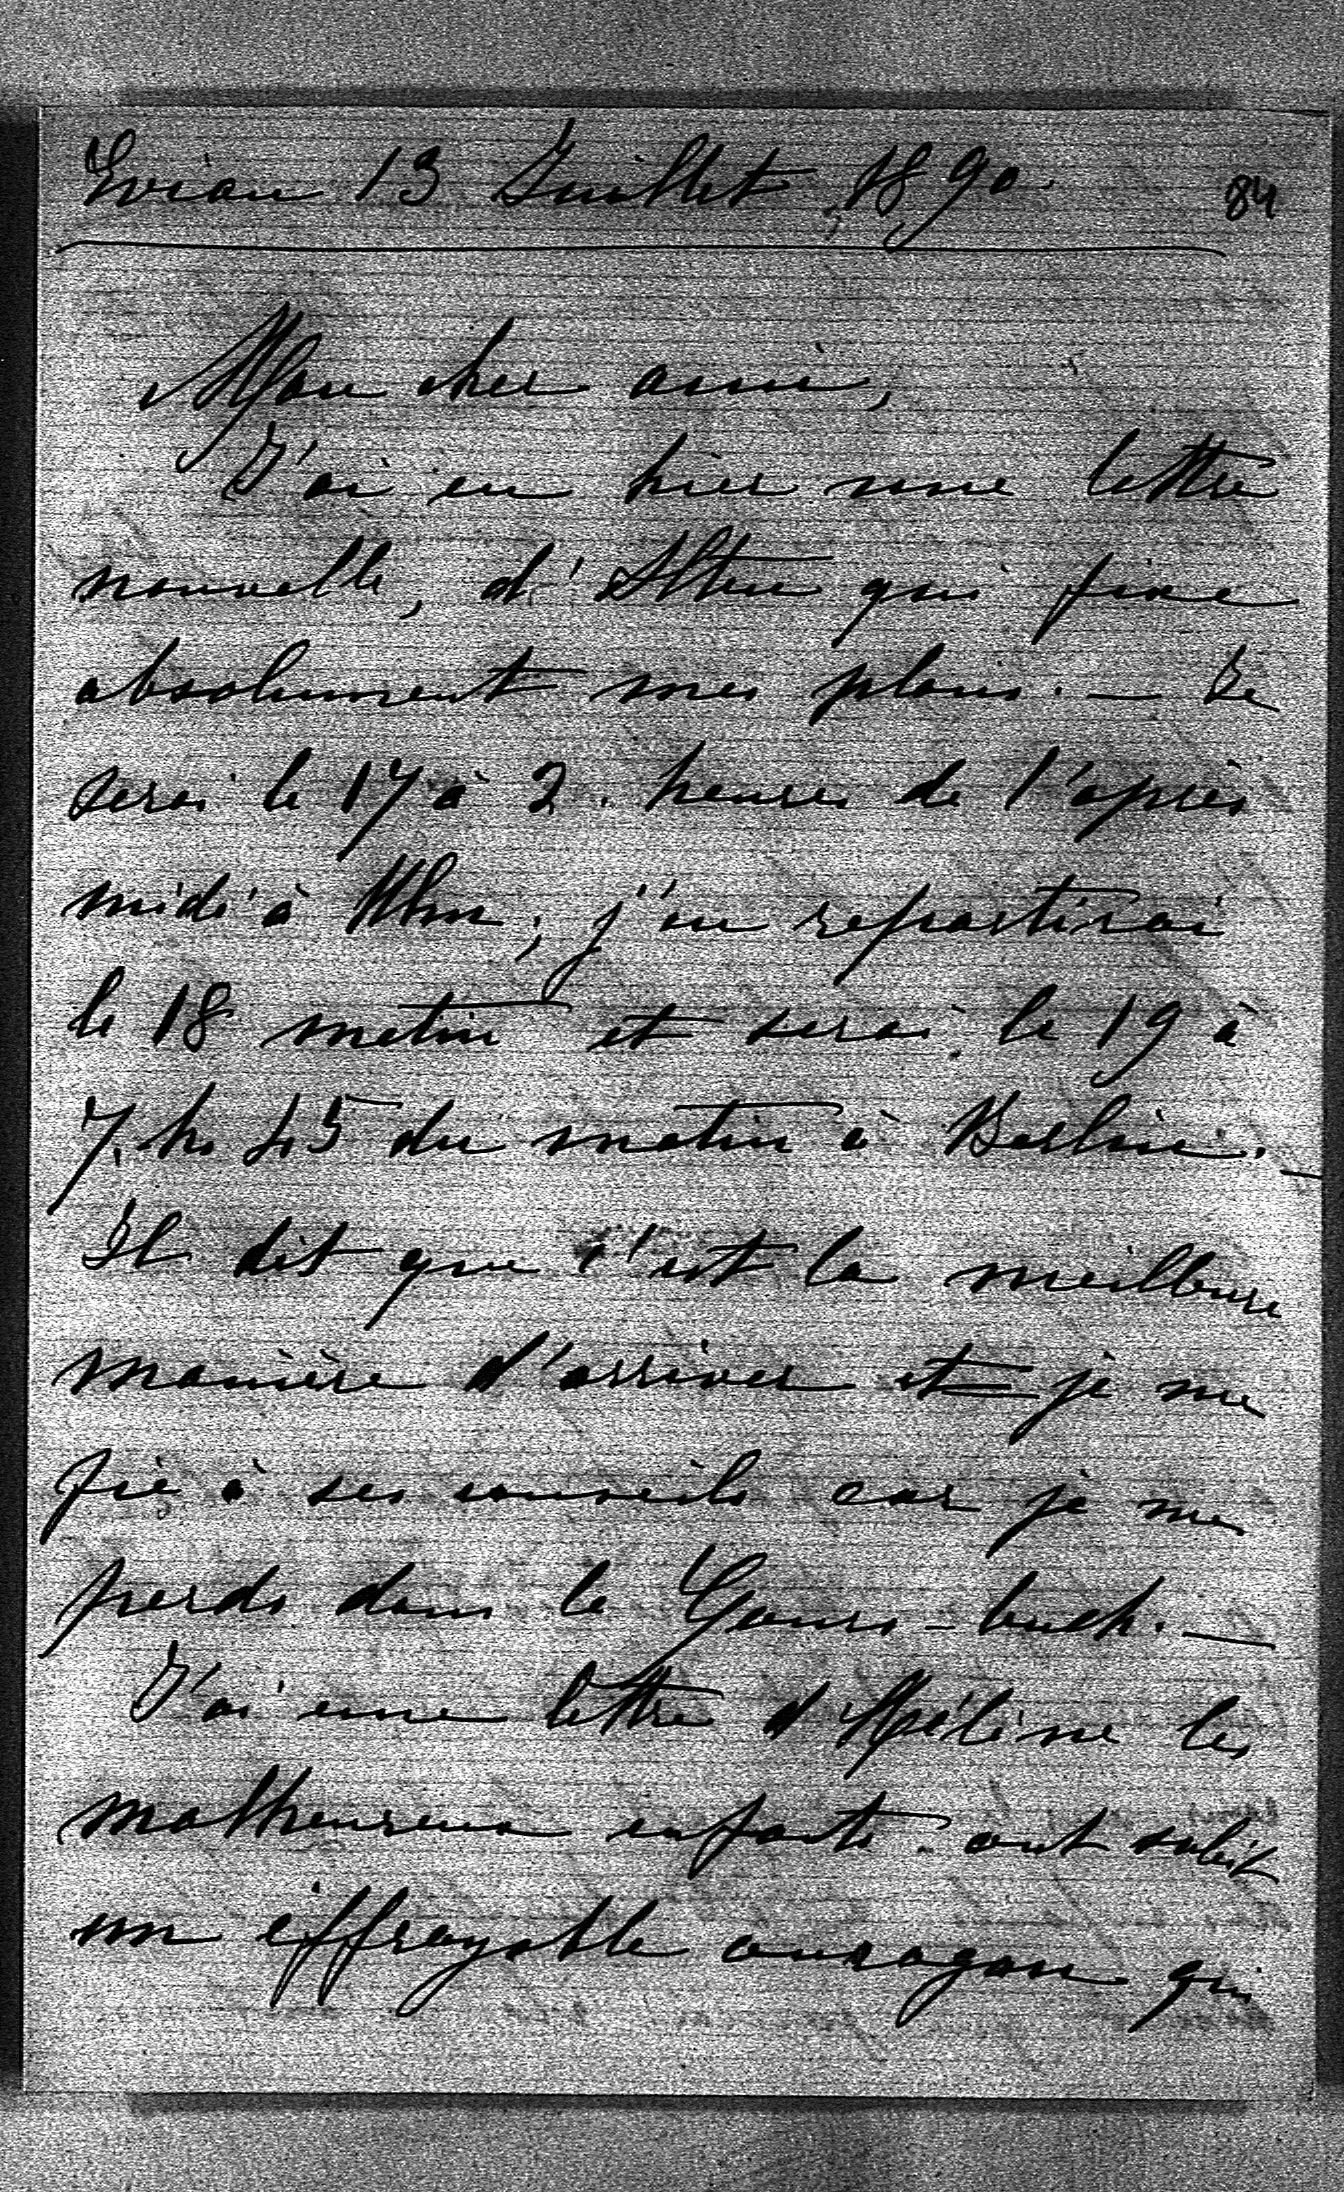 Evian 13 Juillet 1890.
84
Mon cher ami,
J'ai eu hier une lettre
nouvelle, d'Alten qui fixe
absolument mes plans. — Je
serai le 17 à 2. heures de l'après
midi à Ulm; j'en repartirai
le 18 matin et serai le 19 à
7. h 45 du matin à Berlin. —
Il dit que c'est la meilleure
manière d'arriver et je me
fie à ses conseils car je me
perds dans le Cours-buch. —
J'ai eu une lettre d'Hélène les
malheureux enfants ont subit
un effroyable ouragan qui